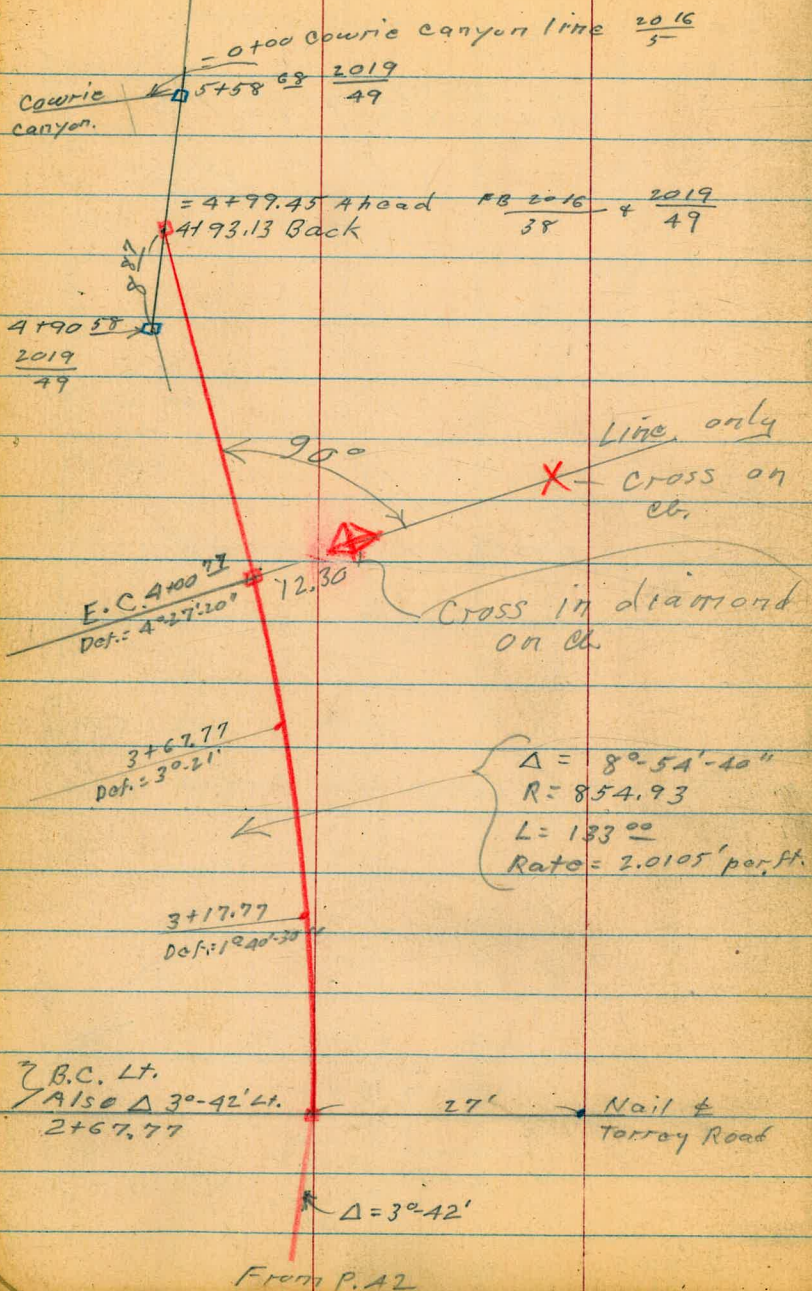 = 0+00 Cowrie Canyon line 2016/5
5+58 68 2019/49
Cowrie
Canyon.
= 4+99.45 Ahead FB 2016/38 & 2019/49
4+93.13 Back
8 87
4+90 58
2019/49
Line only
90°
X Cross on
cb.
E.C. 4+00 77
Def. = 4°-27'-20"
12.30
Cross in diamond
on cb
3+67.77
Def. = 3°-21'
Δ = 8°-54'-40"
R = 854.93
L = 133 00
Rate = 2.0105' per. ft.
3+17.77
Def. = 1°40'-30"
B.C. Lt.
Also Δ 3°-42' Lt.
2+67.77
27'
Nail ⅊
Torrey Road
Δ = 3°-42'
From P. 42